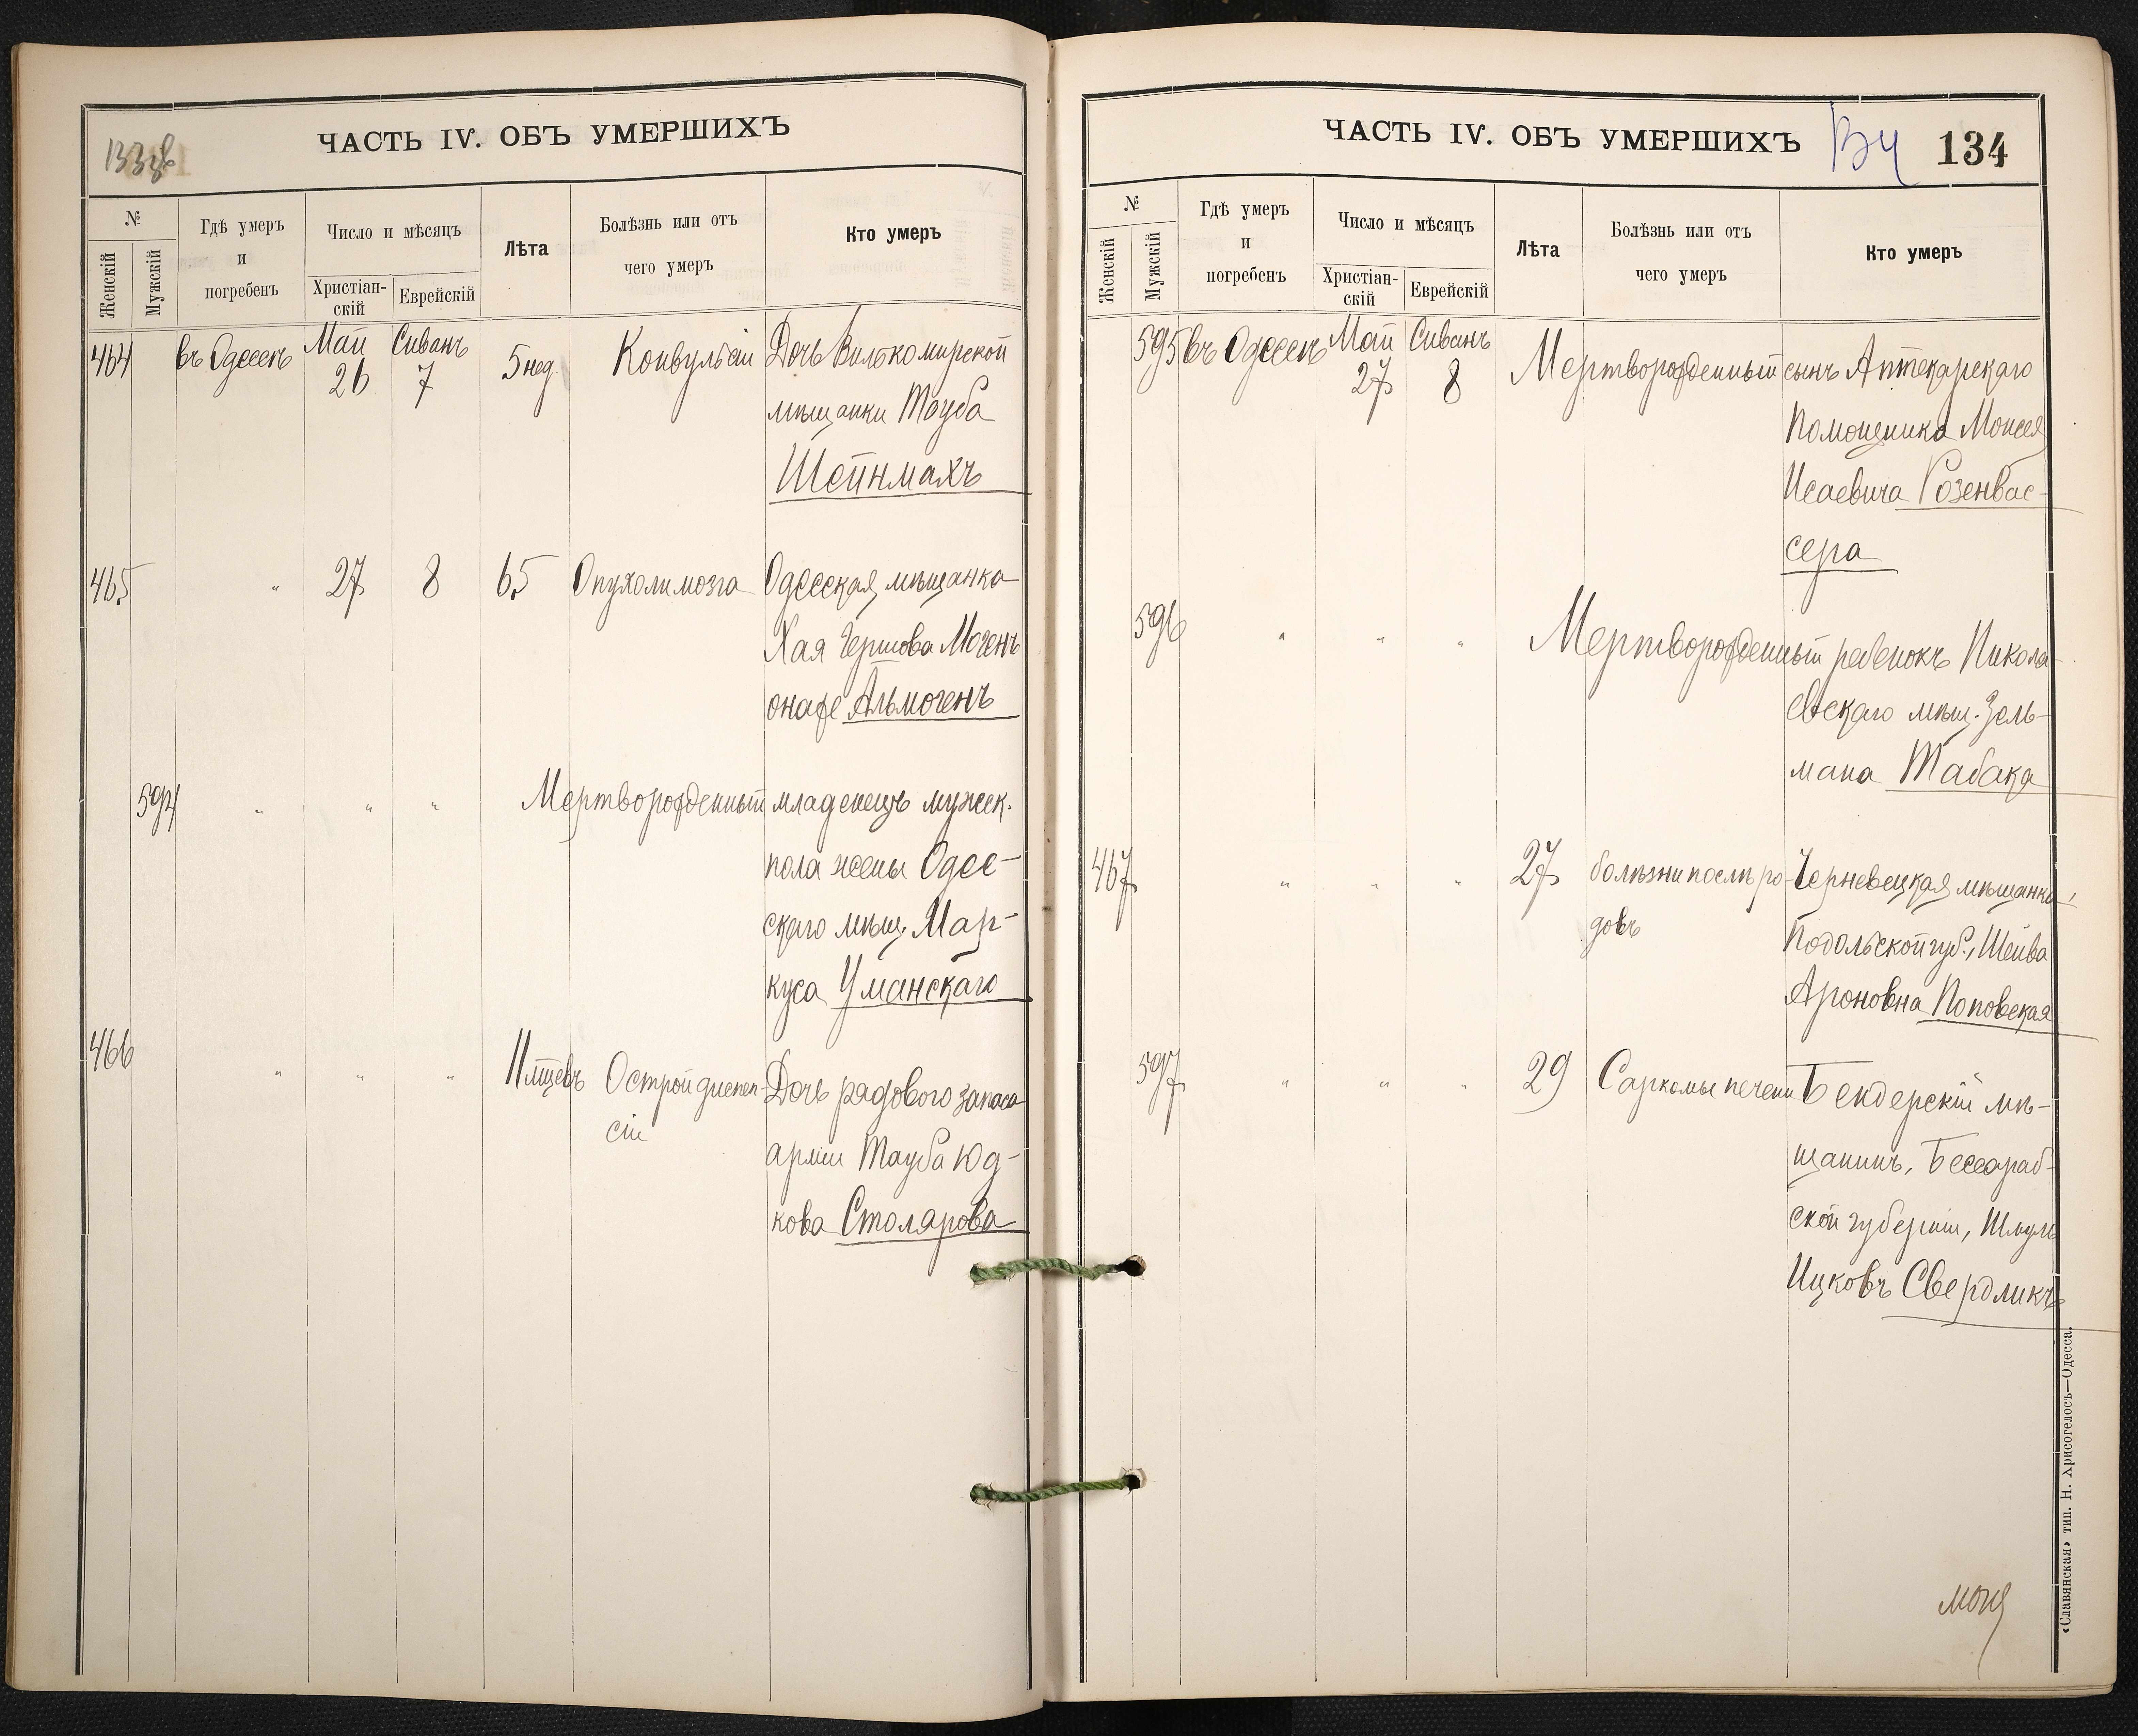 133об
ЧАСТЬ IV. ОБЪ УМЕРШИХЪ
№
Женскій
Мужскій
Гдѣ умеръ
и
погребенъ
Число и мѣсяцъ
Христіан-
скій
Еврейскій
Лѣта
Болѣзнь или отъ
чего умеръ
Кто умеръ
464 въ Одессѣ Май 26 Сиванъ 7 5 нед. Конвульсіи Дочь Вилькомирской
мѣщанки Тауба
Шейнмахъ
465 " 27 8 65 Опухоли мозга Одесская мѣщанка
Хая Гершова Могенъ
онаже Альмогенъ
594 " " " Мертворожденный младенецъ мужск.
пола жены Одес-
скаго мѣщ. Мар-
куса Уманскаго
466 " " " 11 мѣцевъ Острой диспеп- Дочь рядового запаса
сіи
арміи Тауба Юд-
кова Столярова
ЧАСТЬ IV. ОБЪ УМЕРШИХЪ
134
№
Женскій
Мужскій
Гдѣ умеръ
и
погребенъ
Число и мѣсяцъ
Христіан-
скій
Еврейскій
Лѣта
Болѣзнь или отъ
чего умеръ
Кто умеръ
595 въ Одессѣ Май 27 Сиванъ 8 Мертворожденный сынъ Аптекарскаго
Помощника Моисея
Исаевича Розенвас-
сера
596 " " " Мертворожденный ребенокъ Никола-
евскаго мѣщ. Зель-
мана Табака
467 " " " 27 болѣзни послѣ ро- Черневецкая мѣщанка,
довъ
Подольской губ., Шейва
Ароновна Поповская
597 " " " 29 Саркомы печени Бендерскій мѣ-
щанинъ, Бессараб-
ской губерніи, Шмуль
Ицковъ Свердликъ
«Славянская» тип. Н. Хрисогелосъ—Одесса.